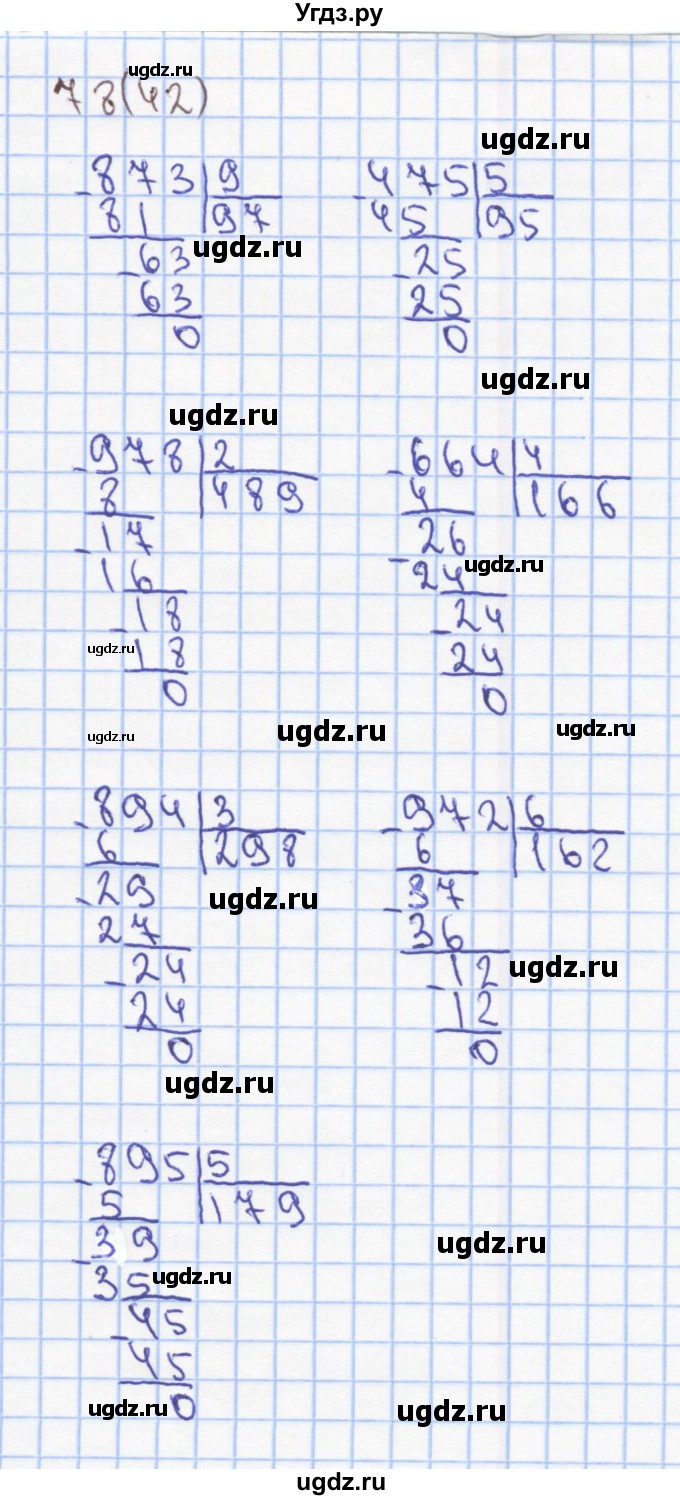 Угдз.ру
ugdz.ru
78(42)
ugdz.ru
- 873 | 9
81 | 97
ugdz.ru
- 63
63
0
- 475 | 5
45 | 95
- 25
25
0
ugdz.ru
ugdz.ru
- 978 | 2
8 | 489
- 17
16
- 18
ugdz.ru
18
0
- 664 | 4
4 | 166
- 26
ugdz.ru
24
- 24
24
0
ugdz.ru
ugdz.ru
ugdz.ru
- 894 | 3
6 | 298
- 29
ugdz.ru
27
- 24
24
0
- 972 | 6
6 | 162
- 37
36
- 12
ugdz.ru
12
0
ugdz.ru
- 895 | 5
5 | 179
- 39
ugdz.ru
35
ugdz.ru
- 45
45
0
ugdz.ru
ugdz.ru
ugdz.ru